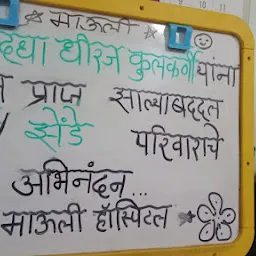 माऊली
धीरज कुलकर्णी यांना
प्राप्त झाल्याबद्दल
झेंडे परिवाराचे
अभिनंदन...
माऊली हॉस्पिटल